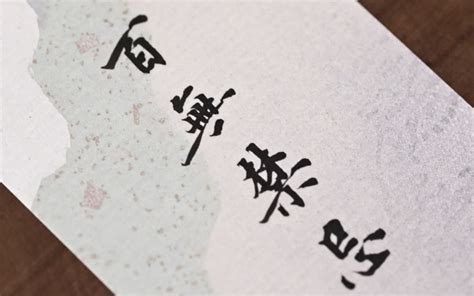 百無禁忌